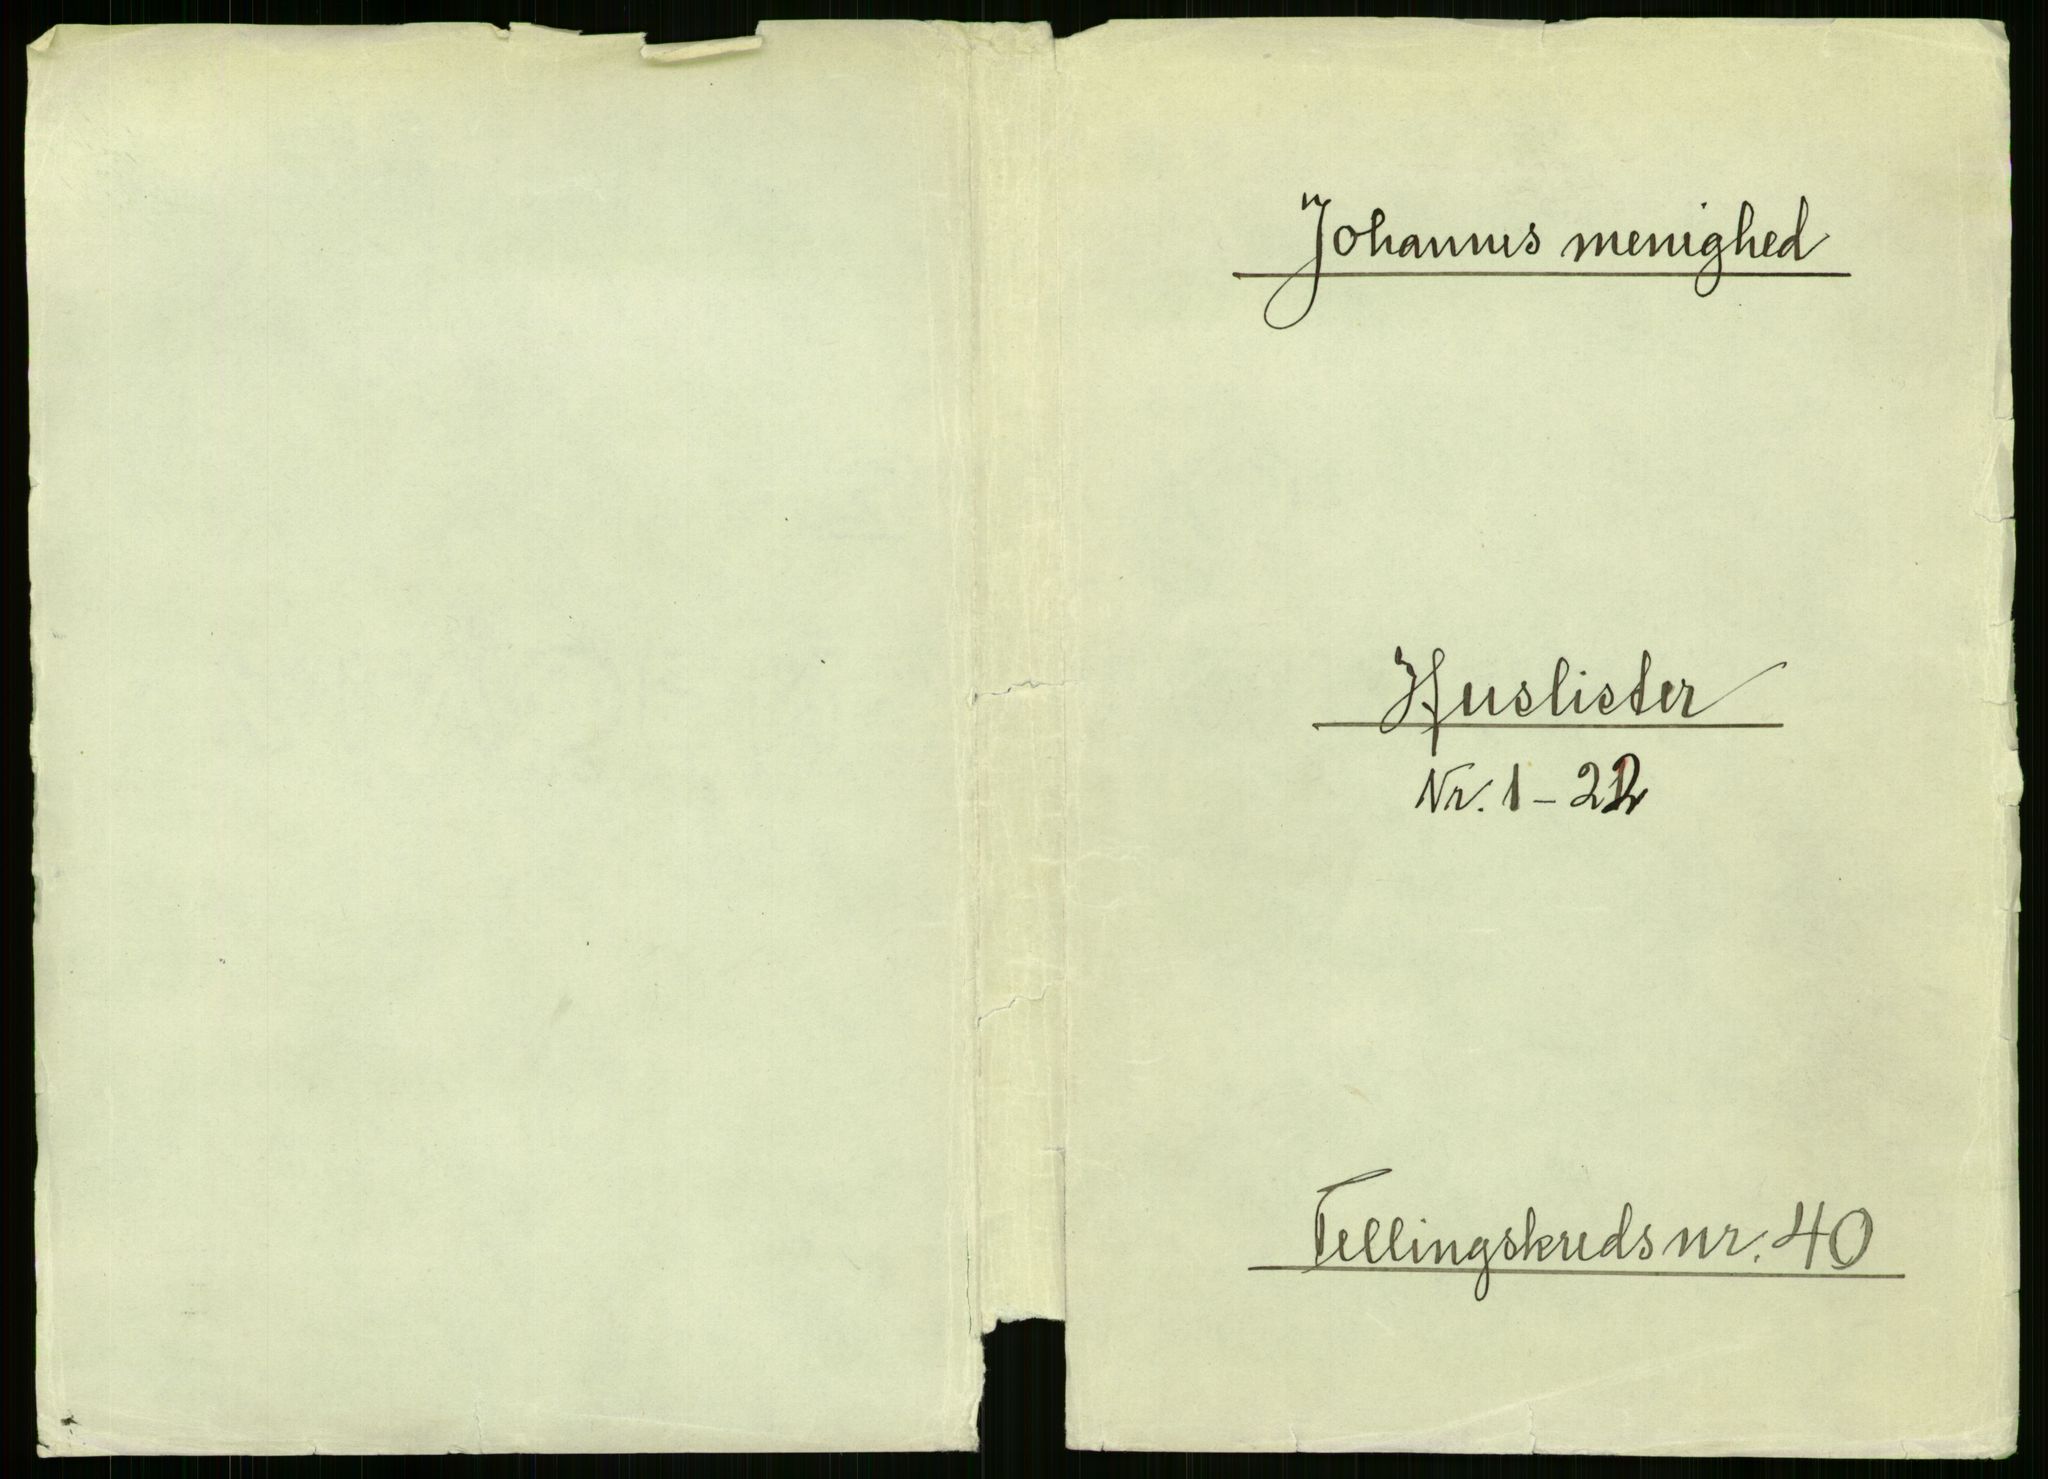 Johannes menighed
Huslister
Nr. 1 - 22
Tellingskreds nr. 40